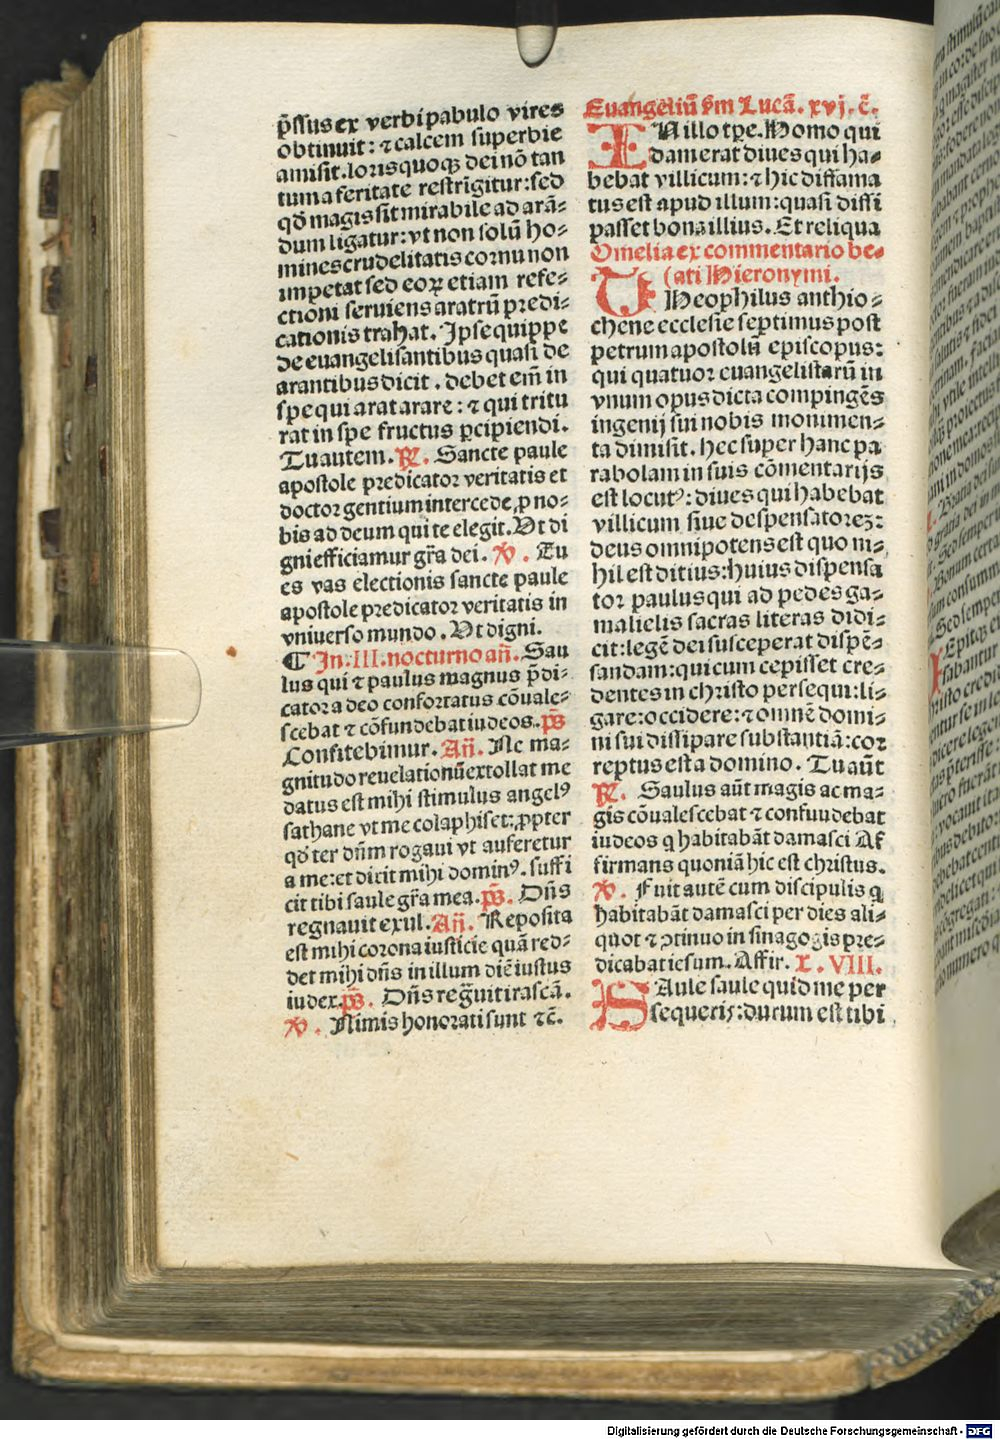 p̄ssus ex verbi pabulo vires
obtinuit: ⁊ calcem superbie
amisit. loris quoqꝫ dei nō tan
tum a feritate restrigitur: sed
qď magis sit mirabile ad arā⸗
dum ligatur: vt non solū ho⸗
mines crudelitatis cornu non
impetat sed eoꝝ etiam refe⸗
ctioni seruiens aratrū predi⸗
cationis trahat. Ipse quippe
de euangelisantibus quasi de
arantibus dicit. debet em̄ in
spe qui arat arare: ⁊ qui tritu
rat in spe fructus ꝑcipiendi.
Tu autem. ℟. Sancte paule
apostole predicator veritatis et
doctor gentium intercede ꝓ no⸗
bis ad deum qui te elegit. Vt di
gni efficiamur gr̄a dei. ℣. Tu
es vas electionis sancte paule
apostole predicator veritatis in
vniuerso mundo. Vt digni.
¶ In. III. nocturno añ. Sau
lus qui ⁊ paulus magnus p̄di⸗
cator a deo confortatus cōuale⸗
scebat ⁊ cōfundebat iudeos. p̄s
Confitebimur. Añ. Ne ma⸗
gnitudo reuelationū extollat me
datus est mihi stimulus angelꝰ
sathane vt me colaphiset: ꝓpter
qď ter dñm rogaui vt auferetur
a me: et dixit mihi dominꝰ. suffi
cit tibi saule gr̄a mea. p̄s. Dñs
regnauit exul. Añ. Reposita
est mihi corona iusticie quā red⸗
det mihi dñs in illum diē iustus
iudex. p̄s. Dñs reg̃uit irascā.
℣. Nimis honorati sunt ⁊c̄.
Euangeliū s̄m Lucā. xvj. c̄.
IN illo tꝑe. Homo qui
dam erat diues qui ha⸗
bebat villicum: ⁊ hic diffama
tus est apud illum: quasi dissi
passet bona illius. Et reliqua
Omelia ex commentario be⸗
(ati Hieronymi.
THeophilus anthio⸗
chene ecclesie septimus post
petrum apostolū episcopus:
qui quatuor euangelistarū in
vnum opus dicta compingēs
ingenij sui nobis monimen⸗
ta dimisit. hec super hanc pa
rabolam in suis cōmentarijs
est locutꝰ: diues qui habebat
villicum siue despensatoreꝫ:
deus omnipotens est quo ni⸗
hil est ditius: huius dispensa
tor paulus qui ad pedes ga⸗
malielis sacras literas didi⸗
cit: legē dei susceperat dispē⸗
sandam: qui cum cepisset cre⸗
dentes in christo persequi: li⸗
gare: occidere: ⁊ omnē domi⸗
ni sui dissipare substantiā: cor
reptus est a domino. Tu aūt
℟. Saulus aūt magis ac ma⸗
gis cōualescebat ⁊ confundebat
iudeos q habitabāt damasci Af
firmans quoniā hic est christus.
℣. Fuit autē cum discipulis q
habitabāt damasci per dies ali⸗
quot ⁊ ꝯtinuo in sinagogis pre⸗
dicabat iesum. Affir. ℟. VIII.
SAule saule quid me per
sequeris: durum est tibi
Digitalisierung gefördert durch die Deutsche Forschungsgemeinschaft - DFG